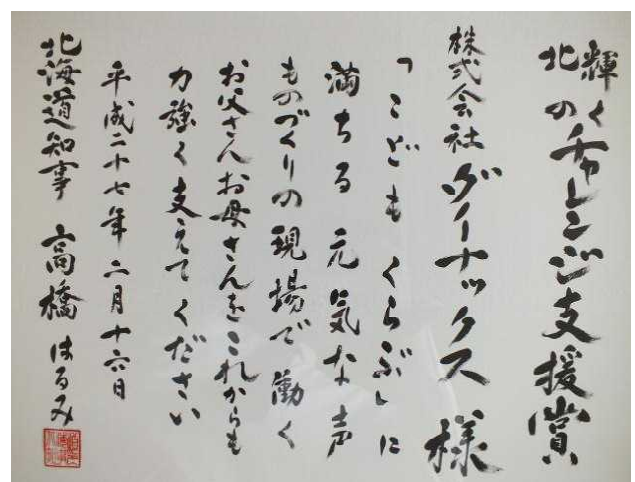 輝く
北の
チャレンジ支援賞
株式会社ダイナックス 様
「こども くらぶ」に
満ちる 元気な声
ものづくりの現場で 働く
お父さんお母さんをこれからも
力強く支えてください
平成二十七年 二月十六日
北海道知事 高橋はるみ